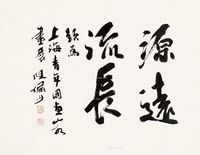 源遠
流長
題為
上海青年國畫家
畫展 陸儼少